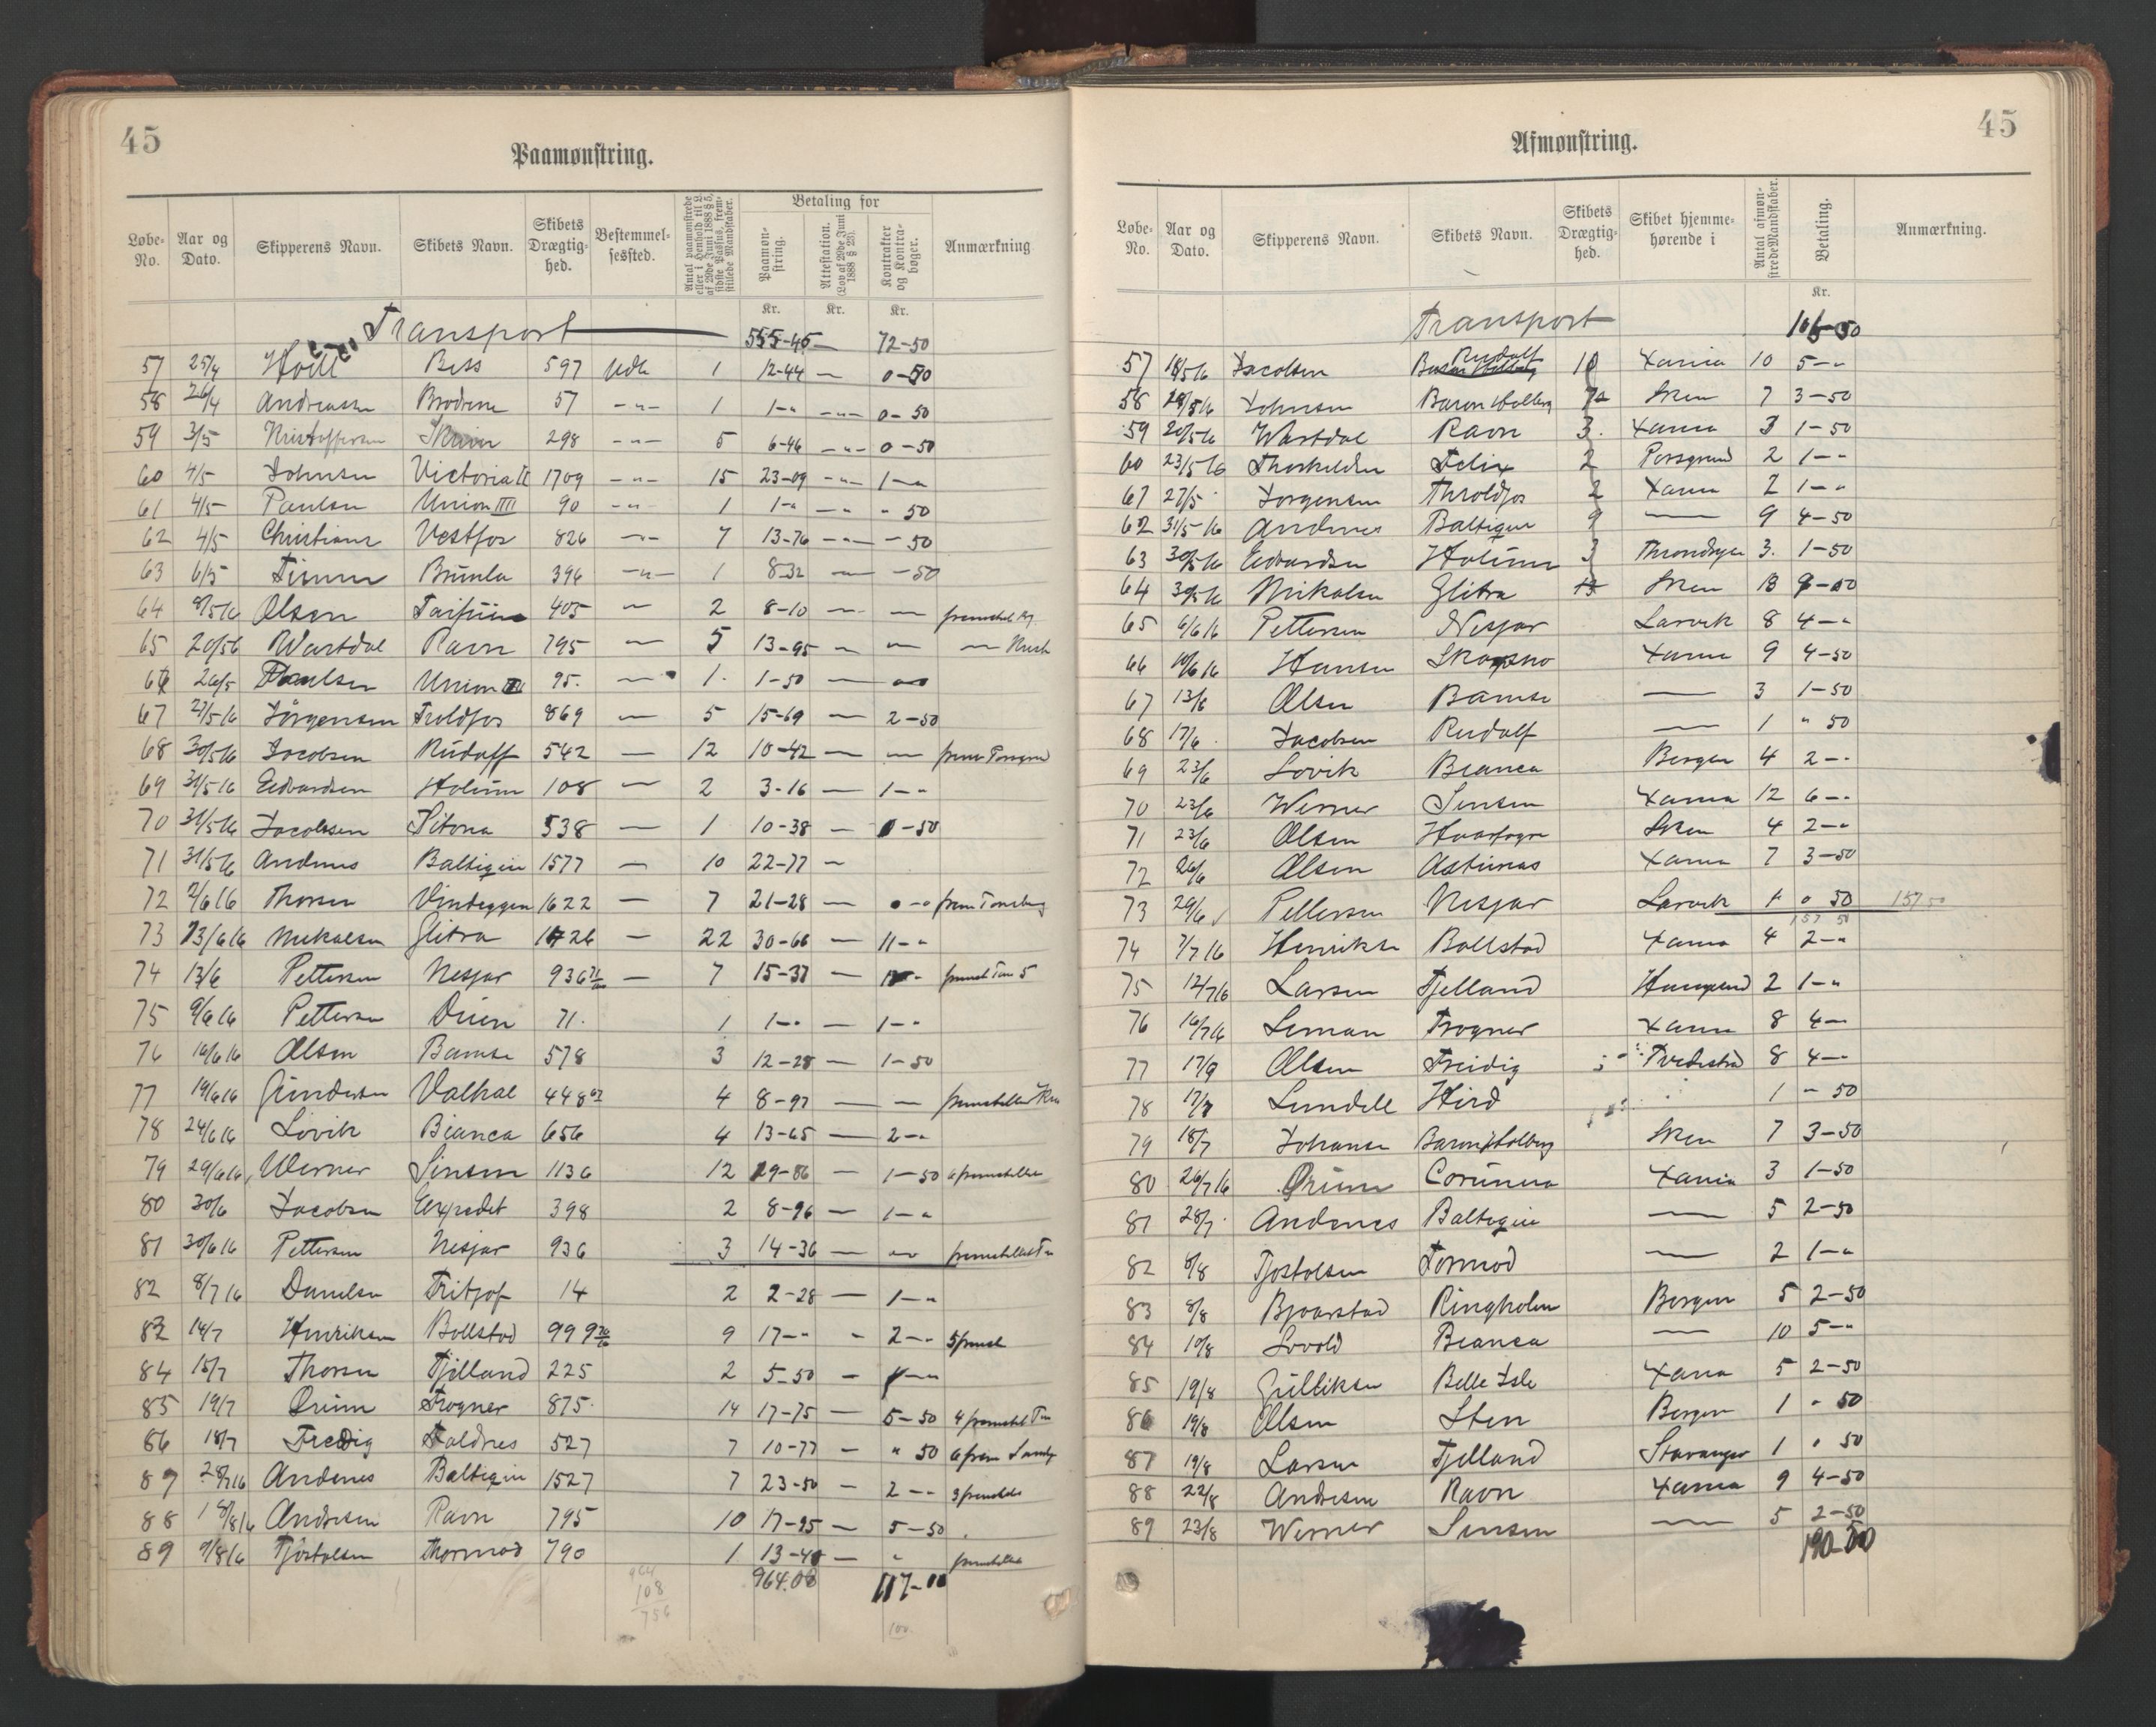 45
Paamønstring.
Løbe-No. Aar og Dato. Skipperens Navn. Skibets Navn. Skibets Drægtig-hed. Bestemmel-sessted. Antal paamønstrede eller i Henhold til L. af 29de Juni 1888 § 5, sidste Passus, frem-stillede Mandskaber. Betaling for Paamøn-string. Attestation. (Lov af 29de Juni 1888 § 26). Kontrakter og Kontra-bøger. Anmærkning
Kr. Kr. Kr.
Transport 555-45 72-50
57 25/4 Bess 597 Udl 1 12-44 — 0-50
58 26/4 Andreassen Brødrene 57 -"- 1 1-" -"- 0-50
59 3/5 Kristoffersen 298 -"- 5 6-46 -"- 0-50
60 4/5 Johnsen Victoria II 1709 -"- 15 23-09 -"- 1-"
61 4/5 Paulsen Union III 90 -"- 1 1-" -" " 50
62 4/5 Christians Vestfos 826 -"- 7 13-76 -"- - 50
63 6/5 Brunla 396 -"- 1 8-32 — - 50
64 8/5 16 Olsen 405 — 2 8-10 — —
65 20/5 16 Wartdal Ravn 795 — 5 13-95 — —
66 26/5 Paulsen Union 95. — 1 1-50 —
67 27/5 16 Jørgensen Troldfos 869 — 5 15-69 — 2-50
68 30/5 16 Jacobsen Rudolf 542 — 12 10-42 — —
69 31/5 16 Edvardsen Holum 108 — 2 3-16 — 1-"
70 31/5 16 Jacobsen Sitona 538 — 1 10-38 — 0-50
71 31/5 16 Andenes Baltique 1577 — 10 22-77 —
72 2/6 16 Thorsen Vindeggen 1622 — 7 21-28 — frem Tonsberg
73 13/6 16 Mikalsen Glitra 1426 — 22 30-66 — 11-"
74 13/6 Pettersen Nesjar 936 — 7 15-37 —
75 9/6 16 Pettersen 71. 1 1-" — 1-"
76 16/6 16 Olsen Bamse 578 3 12-28 — 1-50
77 19/6 16 Gundersen Valhal 448 4 8-97 — —
78 24/6 16 Lovik Bianca 656 4 13-65 — 2-"
79 29/6 16 Werner Sinsen 1136 12 29-86 — 1-50
80 30/6 Jacobsen Expedit 398 2 8-96 — 1-"
81 30/6 16 Pettersen Nesjar 936 3 14-36 —
82 8/7 16 Danielsen Fritjof 14 2 2-28 — 1-"
83 14/7 Henriksen Bollstad 999 9 17-" " 2-"
84 15/7 Thorsen Fjelland 225 2 5-50 —
85 19/7 Drum Frogner 875 14 17-75 — 5-50
86 18/7 Fredig Foldnes 527 7 10-77 — " 50
87 28/7 16 Andenes Baltique 1527 7 23-50 — 2-"
88 18/8 16 Andresen Ravn 795 10 17-95 — 5-50
89 9/8 16 Tjostolsen Thormod 790 1 13-40 — "
964.00 117-00
964
108
756
100
45
Afmønstring.
Løbe-No. Aar og Dato. Skipperens Navn. Skibets Navn. Skibets Drægtig-hed. Skibet hjemme-hørende i Antal afmøn-strede Mandskaber. Betaling. Anmærkning.
Kr.
Transport 106-50
57 18/5 16 Jacobsen Rudolf 10 Xania 10 5-"
58 Johnsen Baron Holberg 7 Skien 7 3-50
59 20/5 16 Wartdal Ravn 3. Xania 3 1-50
60 23/5 16 Thorkildsen Felix 2 Porsgrund 2 1-"
61 27/5 Jorgensen Throldfos 2 Xania 2 1-"
62 31/5 16 Andenes Baltique 9 — 9 4-50
63 30/5 16 Edvardsen Holum 3 Throndhjem 3. 1-50
64 30/5 16 Mikalsen Glitra 13 Skien 13
65 6/6 16 Pettersen Nesjar Larvik 8 4-"
66 10/6 16 Hansen Xania 9 4-50
67 13/6 Olsen Bamse — 3 1-50
68 17/6 Jacobsen Rudolf — 1 " 50
69 23/6 Lovik Bianca Bergen 4 2-"
70 23/6 Werner Sinsen Xania 12 6-"
71 23/6 Olsen Haarfagre Skien 4 2-"
72 26/6 Olsen Asturias Xania 7 3-50
73 29/6 Pettersen Nesjar Larvik 1 " 50 157 50
157 50
74 7/7 16 Henriksen Bollstad Xania 4 2-"
75 12/7 16 Larsen Fjelland Haugesund 2 1-"
76 16/7 16 Leman Frogner Xania 8 4-
77 17/7 Olsen Freidig Tvedestrand 8 4-"
78 17/7 Lundell Hird 1 - 50
79 18/7 Johansen Baron Holberg Skien 7 3-50
80 26/7 16 Drum Corunna Xania 3 1-50
81 28/7 Andenes Baltique — 5 2-50
82 8/8 Tjostolsen Tormod — 2 1-"
83 8/8 Bjoarstad Ringholm Bergen 5 2-50
84 10/8 Lovold Bianca — 10 5-"
85 19/8 Gulliksen Belle Isle Xania 5 2-50
86 19/8 Olsen Sten Bergen 1 " 50
87 19/8 Larsen Fjelland Stavanger 1 " 50
88 22/8 Andresen Ravn Xania 9 4-50
89 23/8 Werner Sinsen — 5 2-50
190-50